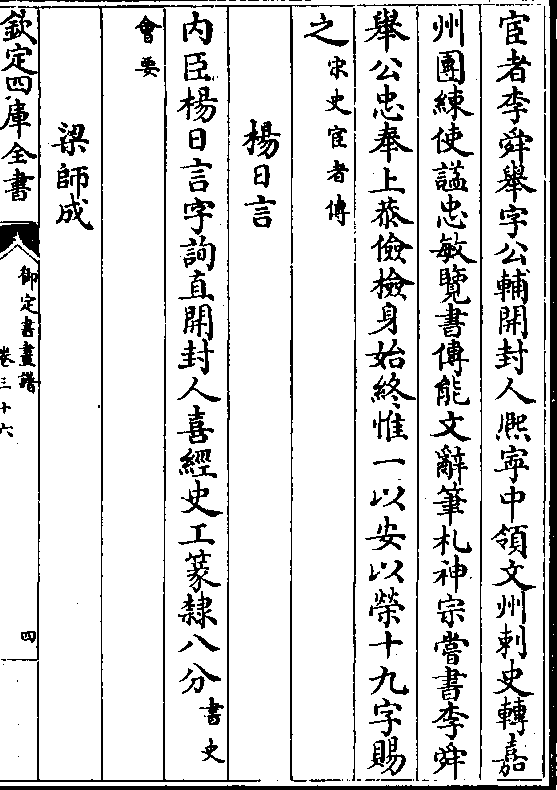 宦者李舜舉字公輔開封人熙寜中領文州刺史轉嘉
州團練使謚忠敏覽書傳能文辭筆札神宗嘗書李舜
舉公忠奉上恭儉檢身始終惟一以安以榮十九字賜
之宋史宦者傳
楊日言
内臣楊日言字詢直開封人喜經史工篆隸八分書史
會要
梁師成
欽定四庫全書
御定書畫譜
卷三十六
四